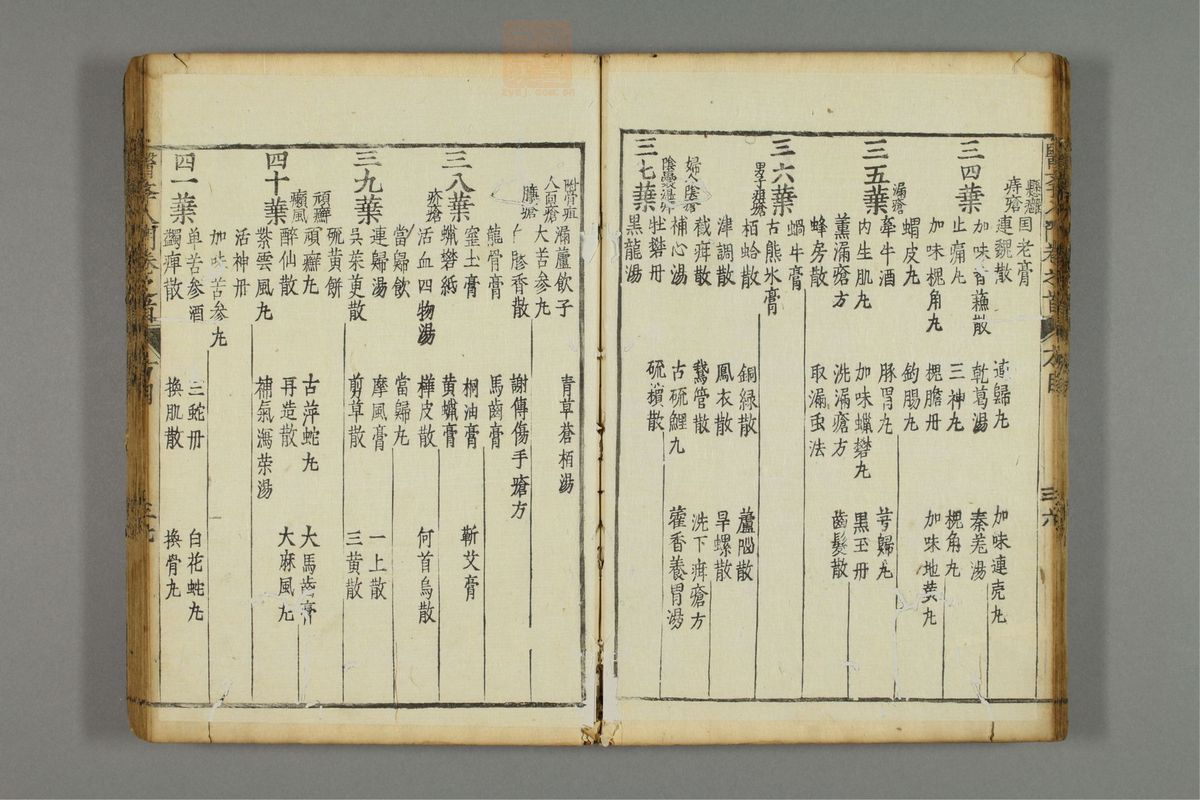 懸癰 国老膏
痔瘡 連魏散 連歸丸 加味連殼丸
三四葉 加味香蘇散 乾葛湯 秦羌湯
止痛丸 三神丸 槐角丸
加味槐角丸 槐膽丹 加味地黄丸
蝟皮丸 鈎腸丸
三五葉 漏瘡 牽牛酒 豚胃丸 芎歸丸
内生肌丸 加味蠟礬丸 黒玉丹
薰漏瘡方 洗漏瘡方 齒髮散
蜂房散 取漏虫法
蝸牛膏
三六葉 古熊氷膏
男子疳瘡 栢蛤散 銅緑散 蘆腦散
津調散 鳳衣散 旱螺散
婦人陰瘡 截疳散 鵞管散 洗下疳瘡方
補心湯 古硫鯉丸 藿香養胃湯
三七葉 牡礬丹 硫檳散
黒龍湯
附骨疽 漏蘆飲子 青草蒼栢湯
人面瘡 大苦參丸
臁瘡 香散 謝傳傷手瘡方
龍骨膏 馬齒膏
三八葉 窒土膏 桐油膏 蘄艾膏
蠟礬紙 黄蠟膏
疥瘡 活血四物湯 樺皮散 何首烏散
當歸飲 當歸丸
三九葉 連歸湯 摩風膏 一上散
吳茱萸散 剪草散 三黄散
硫黄餅
頑癬 頑癬丸 古萍蛇丸 大馬齒膏
癩風 醉仙散 再造散 大麻風丸
四十葉 紫雲風丸 補氣瀉荣湯
活神丹
加味苦参丸
四一葉 单苦参酒 三蛇丹 白花蛇丸
蠲痺散 換肌散 換骨丸